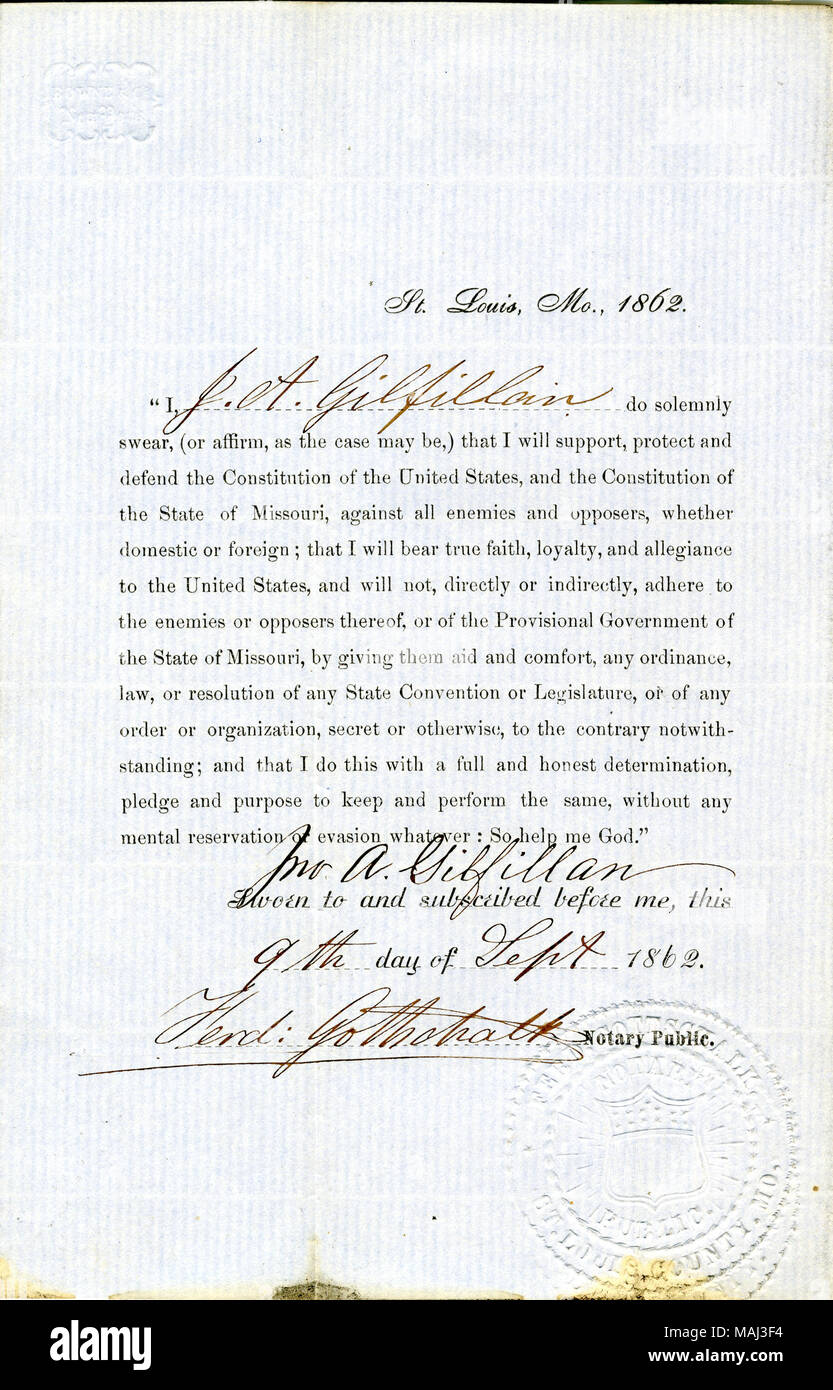 St. Louis, Mo., 1862.
"I, J. A. Gilfillan do solemnly
swear, (or affirm, as the case may be,) that I will support, protect and
defend the Constitution of the United States, and the Constitution of
the State of Missouri, against all enemies and opposers, whether
domestic or foreign; that I will bear true faith, loyalty, and allegiance
to the United States, and will not, directly or indirectly, adhere to
the enemies or opposers thereof, or of the Provisional Government of
the State of Missouri, by giving them aid and comfort, any ordinance,
law, or resolution of any State Convention or Legislature, or of any
order or organization, secret or otherwise, to the contrary notwith-
standing; and that I do this with a full and honest determination,
pledge and purpose to keep and perform the same, without any
mental reservation or evasion whatever: So help me God."
Jno. A. Gilfillan
Sworn to and subscribed before me, this
9th day of Sept 1862.
Ferd: Gottschalk Notary Public.
NOTARY
PUBLIC.
ST. LOUIS COUNTY, MO.
a alamy stock photo
MAJ3F4
www.alamy.com